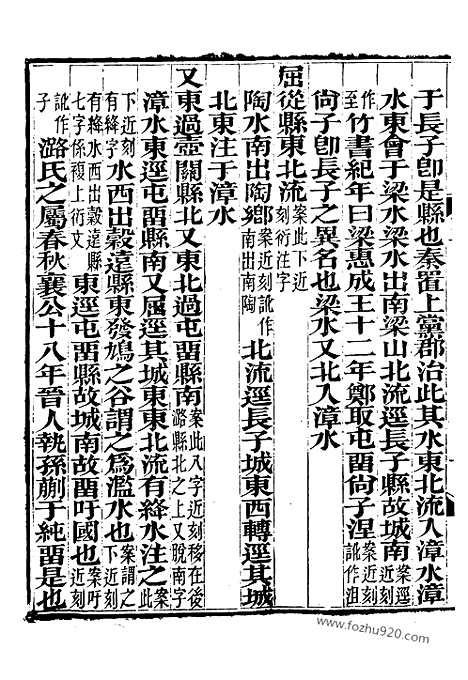 于長子卽是縣也秦置上黨郡治此其水東北流入漳水漳
水東會于梁水梁水出南梁山北流逕長子縣故城南案逕近刻
作至竹書紀年曰梁惠成王十二年鄭取屯畱尙子涅案近刻訛作沮
尙子卽長子之異名也梁水又北入漳水
屈從縣東北流案此下近刻衍注字
陶水南出陶鄕案近刻訛作南出南陶北流逕長子城東西轉逕其城
北東注于漳水
又東過壺關縣北又東北過屯畱縣南案此八字近刻移在後潞縣北之上又脫南字
漳水東逕屯畱縣南又屈逕其城東東北流有絳水注之案此
下近刻有絳字水西出穀遠縣東發鳩之谷謂之爲濫水也案謂之下近刻
有絳水西出穀遠縣七字係複上衍文東逕屯畱縣故城南故畱吁國也案吁近刻
訛作子潞氏之屬春秋襄公十八年晉人執孫蒯于純畱是也
www.fozhu920.com